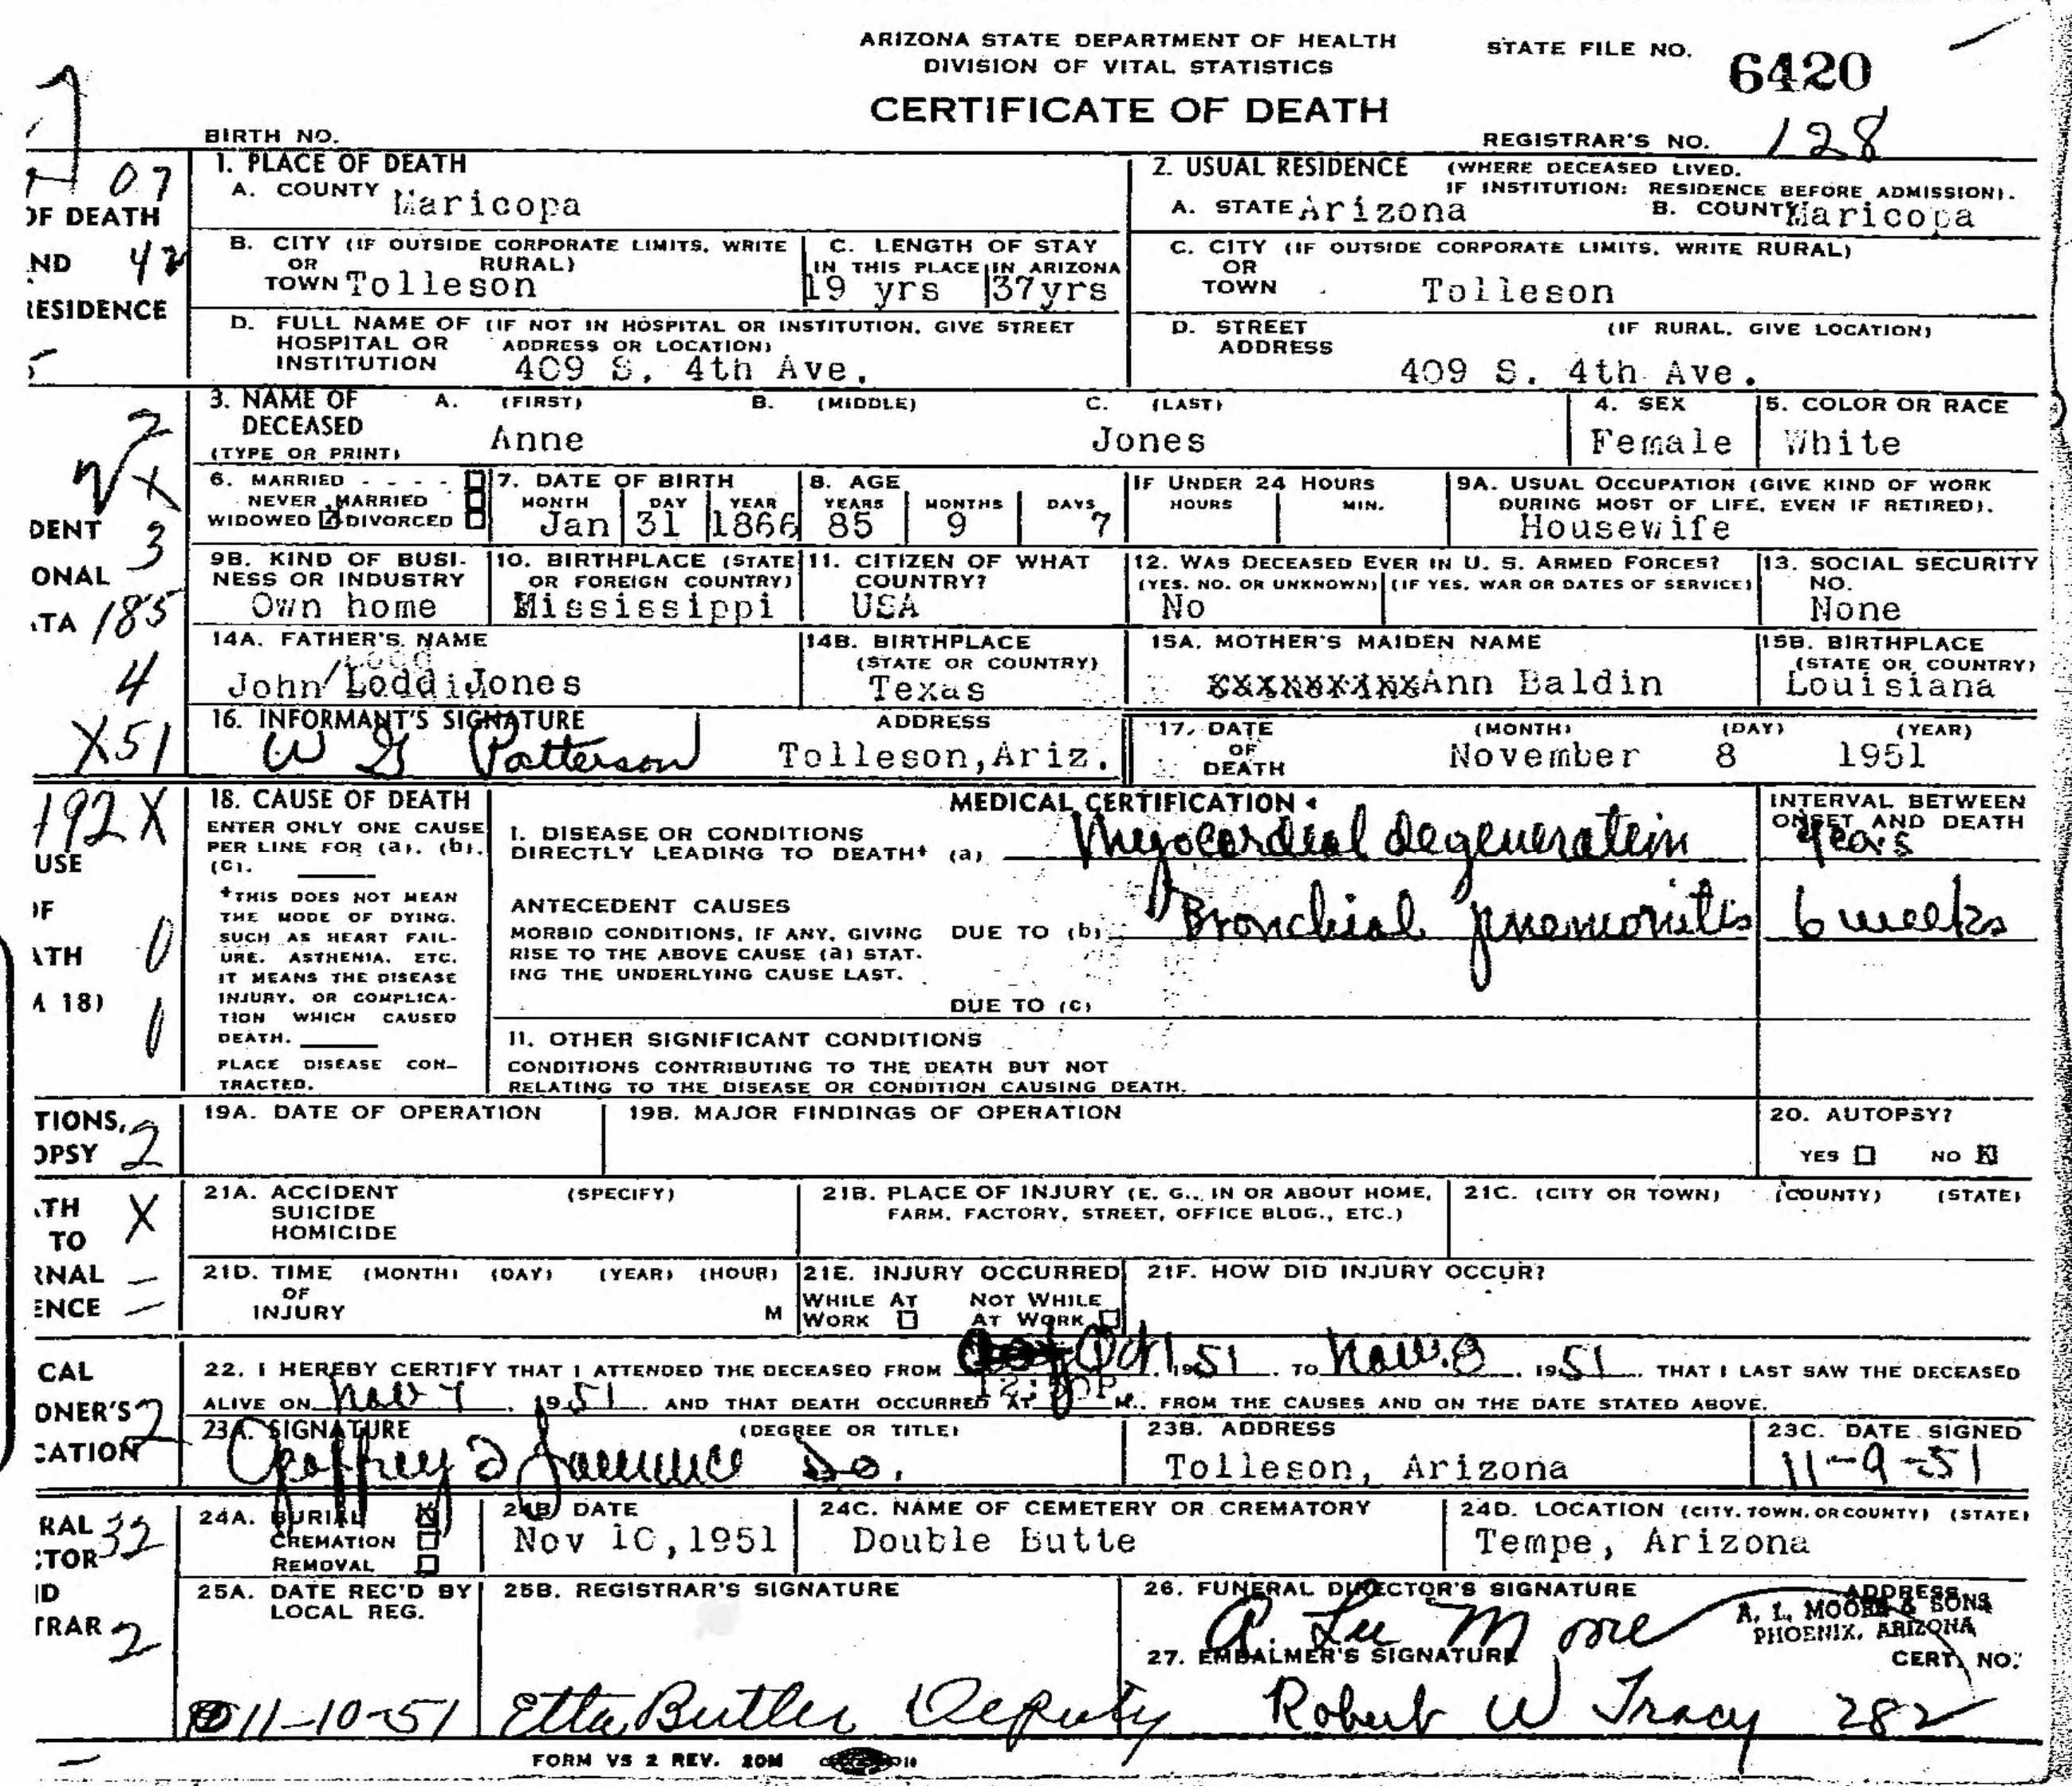 ARIZONA STATE DEPARTMENT OF HEALTH
DIVISION OF VITAL STATISTICS
CERTIFICATE OF DEATH
STATE FILE NO. 6420
BIRTH NO.
REGISTRAR'S NO. 128
07
OF DEATH
ND 42
RESIDENCE
1. PLACE OF DEATH
A. COUNTY Maricopa
2. USUAL RESIDENCE (WHERE DECEASED LIVED.
IF INSTITUTION: RESIDENCE BEFORE ADMISSION).
A. STATE Arizona B. COUNTY Maricopa
B. CITY (IF OUTSIDE CORPORATE LIMITS, WRITE
OR RURAL)
TOWN Tolleson
C. LENGTH OF STAY
IN THIS PLACE IN ARIZONA
19 yrs 37yrs
C. CITY (IF OUTSIDE CORPORATE LIMITS, WRITE RURAL)
OR
TOWN Tolleson
D. FULL NAME OF (IF NOT IN HOSPITAL OR INSTITUTION, GIVE STREET
HOSPITAL OR ADDRESS OR LOCATION)
INSTITUTION 409 S. 4th Ave.
D. STREET (IF RURAL, GIVE LOCATION)
ADDRESS
409 S. 4th Ave.
2
3. NAME OF A. (FIRST) B. (MIDDLE) C. (LAST)
DECEASED
(TYPE OR PRINT) Anne Jones
4. SEX
Female
5. COLOR OR RACE
White
DENT 3
ONAL
TA 185
4
X51
6. MARRIED - - - -
NEVER MARRIED
WIDOWED DIVORCED
7. DATE OF BIRTH
MONTH DAY YEAR
Jan 31 1866
8. AGE
YEARS MONTHS DAYS
85 9 7
IF UNDER 24 HOURS
HOURS MIN.
9A. USUAL OCCUPATION (GIVE KIND OF WORK
DURING MOST OF LIFE, EVEN IF RETIRED).
Housewife
9B. KIND OF BUSI-
NESS OR INDUSTRY
Own home
10. BIRTHPLACE (STATE
OR FOREIGN COUNTRY)
Mississippi
11. CITIZEN OF WHAT
COUNTRY?
USA
12. WAS DECEASED EVER IN U. S. ARMED FORCES?
(YES, NO, OR UNKNOWN) (IF YES, WAR OR DATES OF SERVICE)
No
13. SOCIAL SECURITY
NO.
None
14A. FATHER'S NAME
John Jones
14B. BIRTHPLACE
(STATE OR COUNTRY)
Texas
15A. MOTHER'S MAIDEN NAME
Ann Baldin
15B. BIRTHPLACE
(STATE OR COUNTRY)
Louisiana
16. INFORMANT'S SIGNATURE ADDRESS
W G Patterson Tolleson, Ariz.
17. DATE (MONTH) (DAY) (YEAR)
OF
DEATH November 8 1951
192X
USE
OF
ATH 0
A 18)
18. CAUSE OF DEATH
ENTER ONLY ONE CAUSE
PER LINE FOR (a), (b),
(c).
+THIS DOES NOT MEAN
THE MODE OF DYING,
SUCH AS HEART FAIL-
URE, ASTHENIA, ETC.
IT MEANS THE DISEASE
INJURY, OR COMPLICA-
TION WHICH CAUSED
DEATH.
PLACE DISEASE CON-
TRACTED.
MEDICAL CERTIFICATION
I. DISEASE OR CONDITIONS
DIRECTLY LEADING TO DEATH+ (a) Myocardial degeneration
INTERVAL BETWEEN
ONSET AND DEATH
years
ANTECEDENT CAUSES
MORBID CONDITIONS, IF ANY, GIVING DUE TO (b) Bronchial pnemonitis 6 weeks
RISE TO THE ABOVE CAUSE (a) STAT-
ING THE UNDERLYING CAUSE LAST.
DUE TO (c)
II. OTHER SIGNIFICANT CONDITIONS
CONDITIONS CONTRIBUTING TO THE DEATH BUT NOT
RELATING TO THE DISEASE OR CONDITION CAUSING DEATH.
TIONS,
OPSY 2
19A. DATE OF OPERATION
19B. MAJOR FINDINGS OF OPERATION
20. AUTOPSY?
YES NO X
ATH X
TO
RNAL
ENCE
21A. ACCIDENT (SPECIFY)
SUICIDE
HOMICIDE
21B. PLACE OF INJURY (E. G., IN OR ABOUT HOME,
FARM, FACTORY, STREET, OFFICE BLDG., ETC.)
21C. (CITY OR TOWN) (COUNTY) (STATE)
21D. TIME (MONTH) (DAY) (YEAR) (HOUR)
OF
INJURY M
21E. INJURY OCCURRED
WHILE AT NOT WHILE
WORK AT WORK
21F. HOW DID INJURY OCCUR?
CAL
ONER'S 2
CATION
22. I HEREBY CERTIFY THAT I ATTENDED THE DECEASED FROM Oct 1, 1951, TO Nov. 8, 1951, THAT I LAST SAW THE DECEASED
ALIVE ON Nov 7, 1951, AND THAT DEATH OCCURRED AT M., FROM THE CAUSES AND ON THE DATE STATED ABOVE.
23A. SIGNATURE (DEGREE OR TITLE)
Geoffrey Lawrence Do.
23B. ADDRESS
Tolleson, Arizona
23C. DATE SIGNED
11-9-51
RAL 32
CTOR
ID
TRAR 2
24A. BURIAL X
CREMATION
REMOVAL
24B. DATE
Nov 10, 1951
24C. NAME OF CEMETERY OR CREMATORY
Double Butte
24D. LOCATION (CITY, TOWN, OR COUNTY) (STATE)
Tempe, Arizona
25A. DATE REC'D BY
LOCAL REG.
11-10-51
25B. REGISTRAR'S SIGNATURE
Etta Butler Deputy
26. FUNERAL DIRECTOR'S SIGNATURE ADDRESS
A. Lee Moore
A. L. MOORE & SONS
PHOENIX, ARIZONA
27. EMBALMER'S SIGNATURE CERT. NO.
Robert W Tracy 282
FORM VS 2 REV. 20M